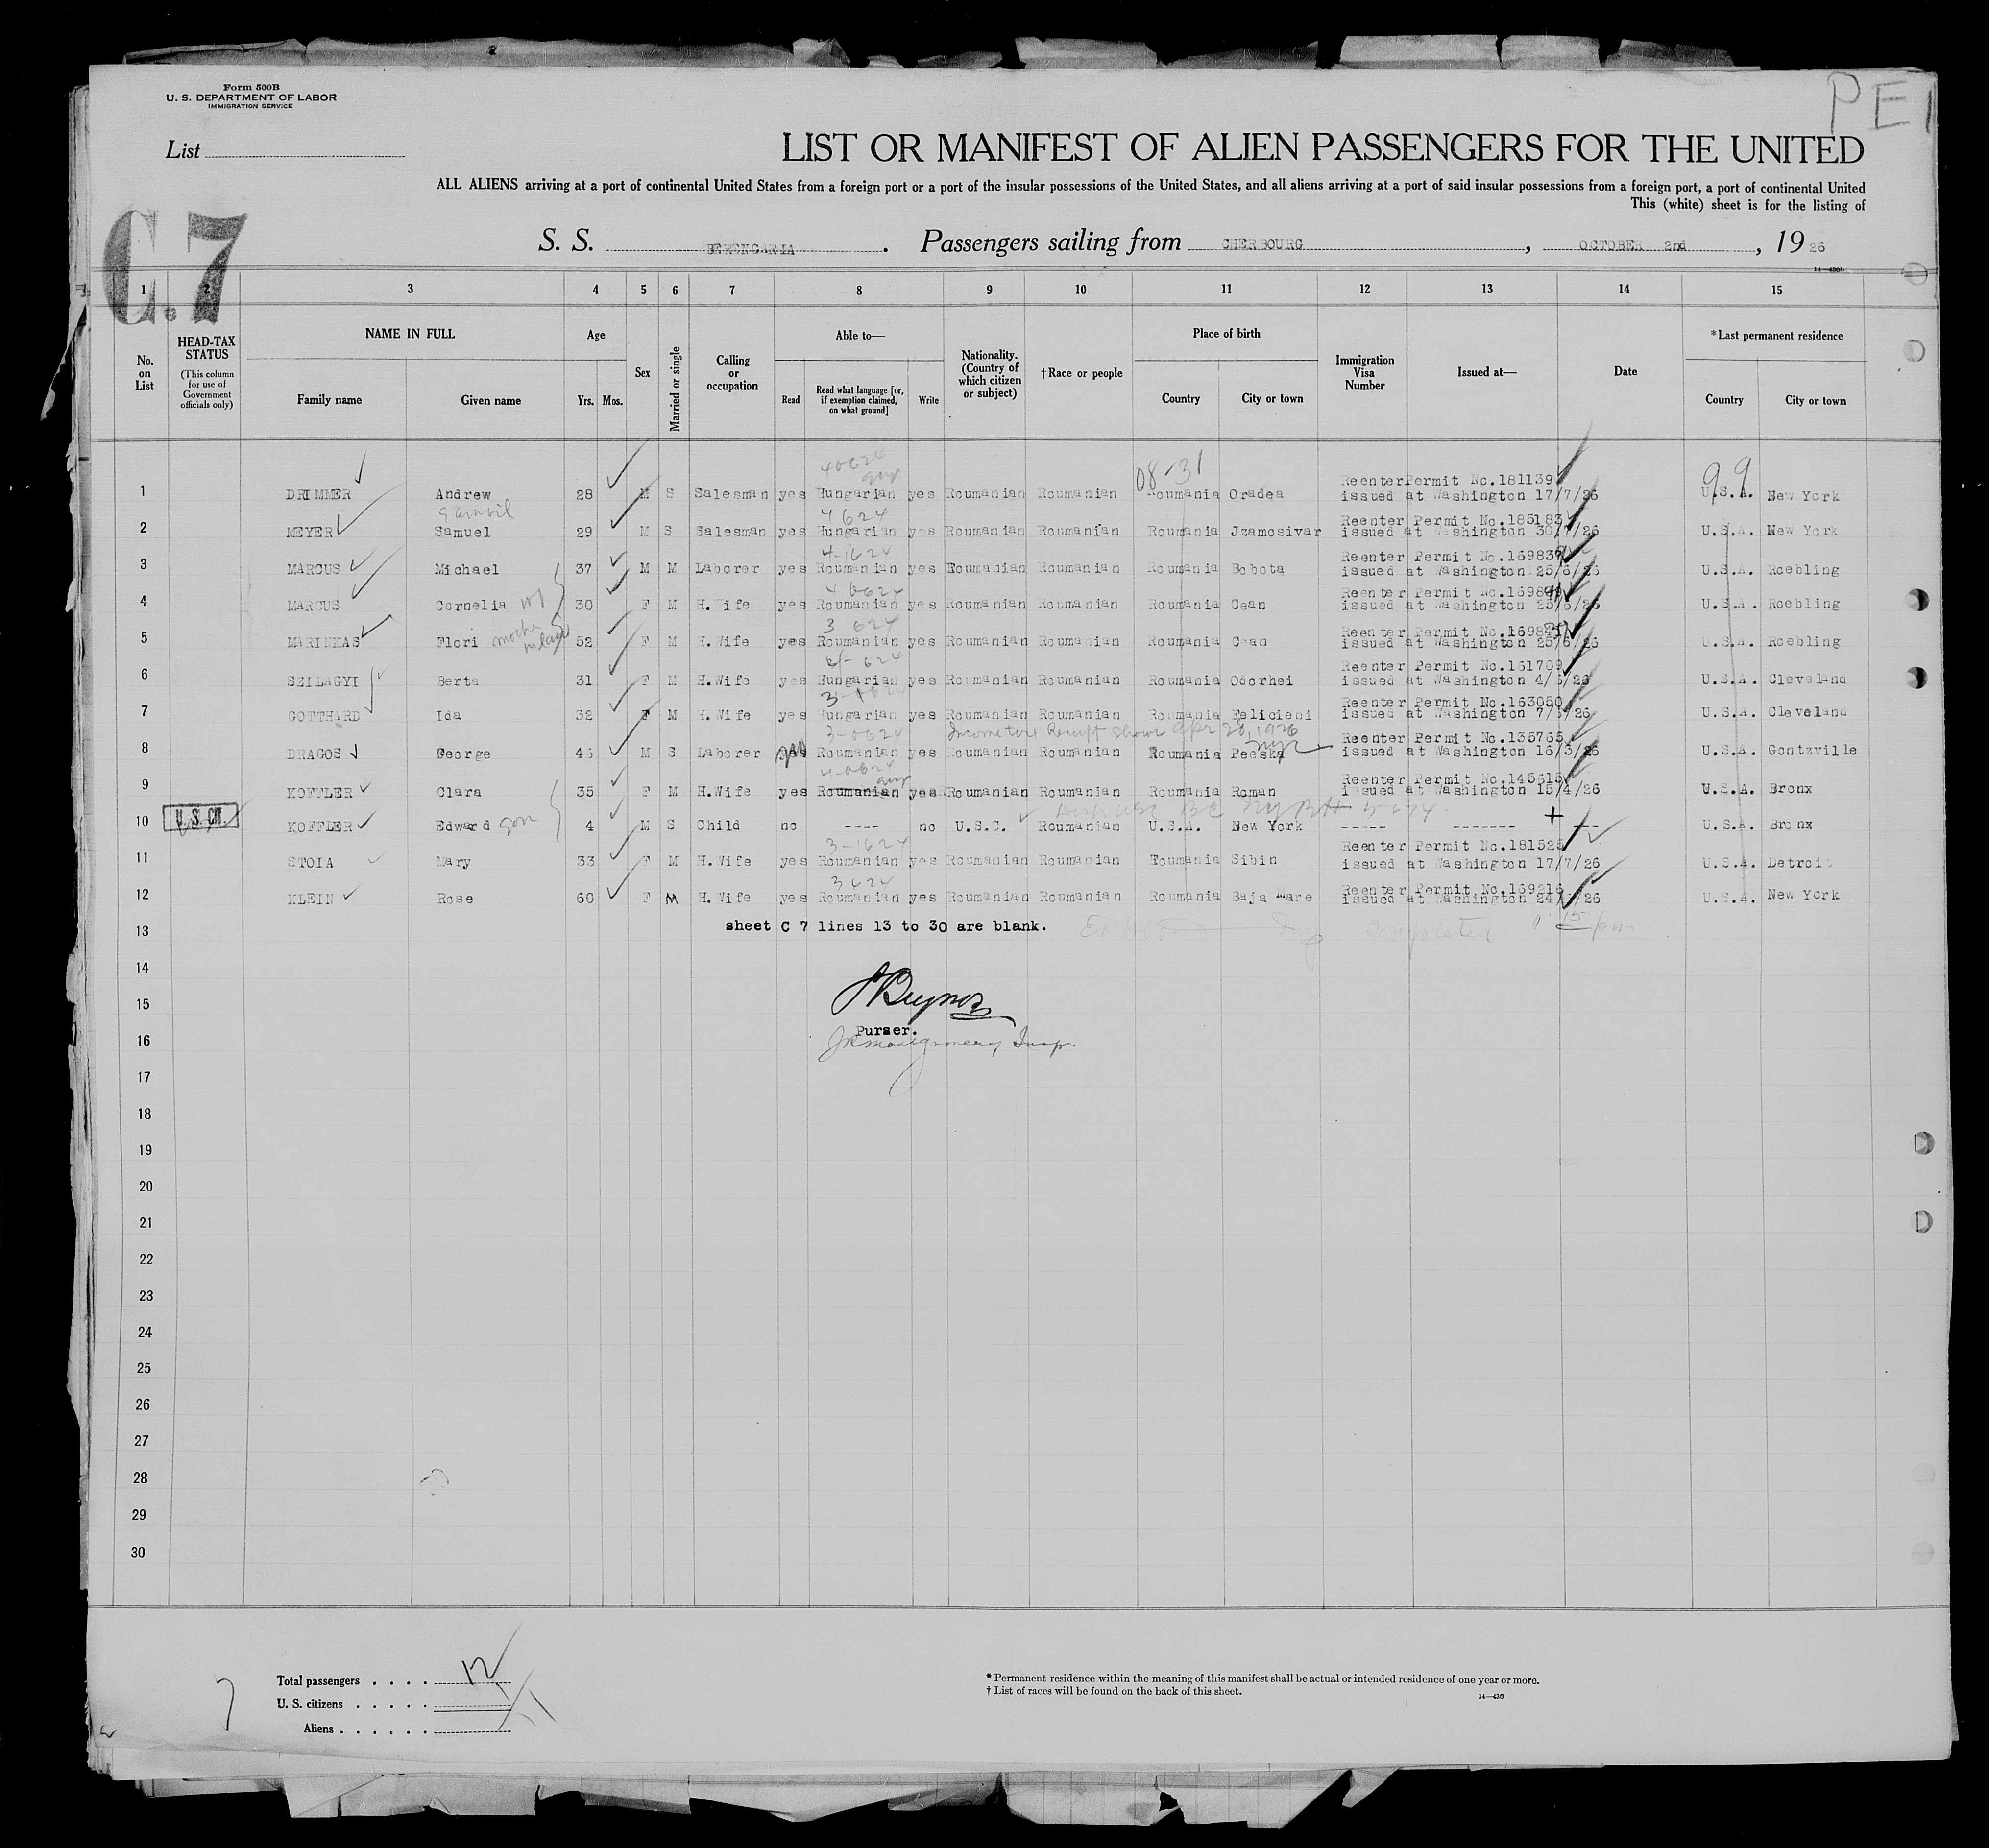 Form 500B
U. S. DEPARTMENT OF LABOR
IMMIGRATION SERVICE
PE
List
LIST OR MANIFEST OF ALIEN PASSENGERS FOR THE UNITED
ALL ALIENS arriving at a port of continental United States from a foreign port or a port of the insular possessions of the United States, and all aliens arriving at a port of said insular possessions from a foreign port, a port of continental United
This (white) sheet is for the listing of
C.7
S. S. BERENGARIA. Passengers sailing from CHERBOURG, OCTOBER 2nd, 1926
14—430b
1 2 3 4 5 6 7 8 9 10 11 12 13 14 15
No. on List HEAD-TAX STATUS (This column for use of Government officials only) NAME IN FULL Family name Given name Age Yrs. Mos. Sex Married or single Calling or occupation Able to— Read Read what language [or, if exemption claimed, on what ground] Write Nationality. (Country of which citizen or subject) †Race or people Place of birth Country City or town Immigration Visa Number Issued at— Date *Last permanent residence Country City or town
08-31 99
1 DRIMMER Andrew 28 M S Salesman yes Hungarian yes Roumanian Roumanian Roumania Oradea Reenter Permit No.181139 issued at Washington 17/7/26 U.S.A. New York
4624
2 MEYER Samuel 29 M S Salesman yes Hungarian yes Roumanian Roumanian Roumania Jzamosivar Reenter Permit No.185183 issued at Washington 30/7/26 U.S.A. New York
4-1624
3 MARCUS Michael 37 M M Laborer yes Roumanian yes Roumanian Roumanian Roumania Bobota Reenter Permit No.169839 issued at Washington 25/6/26 U.S.A. Roebling
4 MARCUS Cornelia 30 F M H.Wife yes Roumanian yes Roumanian Roumanian Roumania Cean Reenter Permit No. issued at Washington 25/6/26 U.S.A. Roebling
3 624
5 MARINKAS Flori mother in law 52 F M H.Wife yes Roumanian yes Roumanian Roumanian Roumania Cean Reenter Permit No. issued at Washington 25/6/26 U.S.A. Roebling
4-624
6 SZILAGYI Berta 31 F M H.Wife yes Hungarian yes Roumanian Roumanian Roumania Odorhei Reenter Permit No.151709 issued at Washington 4/5/26 U.S.A. Cleveland
7 GOTTHARD Ida 32 F M H.Wife yes Hungarian yes Roumanian Roumanian Roumania Felicieni Reenter Permit No.163050 issued at Washington 7/5/26 U.S.A. Cleveland
3-0624 Income tax Receipt shown Apr 28, 1926
8 DRAGOS George 45 M S Laborer Roumanian yes Roumanian Roumanian Roumania Peeska Reenter Permit No.135765 issued at Washington 16/3/26 U.S.A. Gentzville
4-0624
9 KOFFLER Clara 35 F M H.Wife yes Roumanian yes Roumanian Roumanian Roumania Roman Reenter Permit No.145615 issued at Washington 15/4/26 U.S.A. Bronx
10 U.S.CIT. KOFFLER Edward son 4 M S Child no ---- no U.S.C. Roumanian U.S.A. New York ----- ------- --- U.S.A. Bronx
3-1624
11 STOIA Mary 33 F M H.Wife yes Roumanian yes Roumanian Roumanian Roumania Sibin Reenter Permit No.181525 issued at Washington 17/7/26 U.S.A. Detroit
3624
12 KLEIN Rose 60 F M H.Wife yes Roumanian yes Roumanian Roumanian Roumania Baja Mare Reenter Permit No.169216 issued at Washington U.S.A. New York
13 sheet C 7 lines 13 to 30 are blank. completed
14
15
Purser.
16 JR Montgomery Insp.
17
18
19
20
21
22
23
24
25
26
27
28
29
30
Total passengers . . . . 12
U. S. citizens . . . . .
Aliens . . . . . . 11
* Permanent residence within the meaning of this manifest shall be actual or intended residence of one year or more.
† List of races will be found on the back of this sheet.
14—430